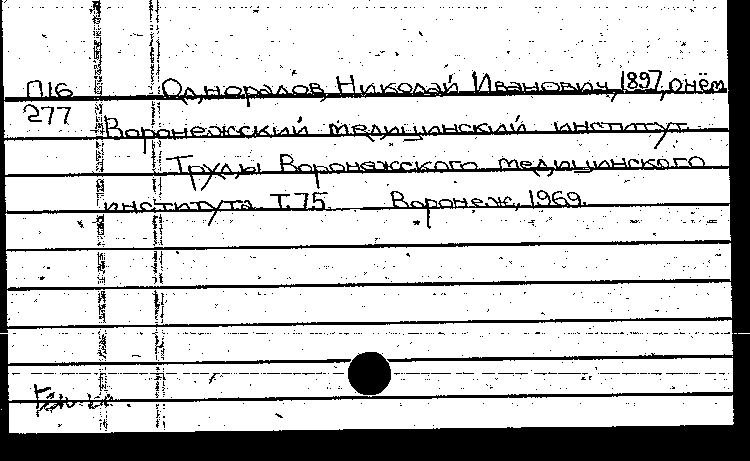 П16 Одноралов, Николай Иванович, 1897, о нём
277
Воронежский медицинский институт
Труды Воронежского медицинского
института. Т. 75. Воронеж, 1969.